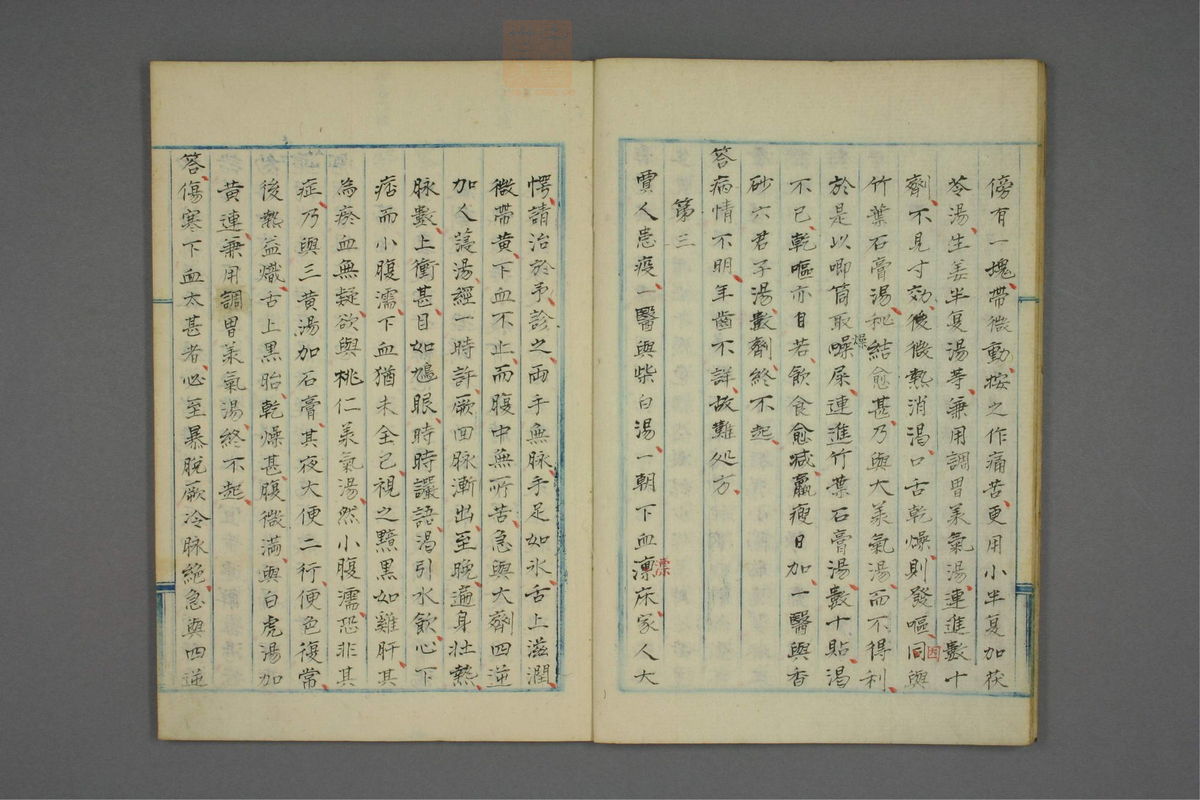 傍有一塊帶微動按之作痛苦更用小半夏加茯
苓湯生姜半夏湯等兼用調胃羕氣湯連進數十
劑不見寸効後微熱消渴口舌乾燥則發嘔同與
因
竹葉石膏湯秘結愈甚乃與大羕氣湯而不得利
於是以唧筒取噪屎連進竹葉石膏湯數十貼渴
燥
不已乾嘔亦自若飲食愈减羸瘦日加一醫與香
砂六君子湯數劑終不起
答病情不明年齒不詳故難処方
第三
賈人患疫一醫與柴白湯一朝下血凛床家人大
愕請治於予診之両手無脉手足如氷舌上滋潤
微帶黄下血不止而腹中無所苦急與大劑四逆
加人蓡湯經一時許厥回脉漸出至晩遍身壮熱
脉數上衝甚目如鳩眼時時譫語渴引水飲心下
痞而小腹濡下血猶未全已視之黯黒如雞肝其
為瘀血無疑欲與桃仁羕氣湯然小腹濡恐非其
症乃與三黄湯加石膏其夜大便二行便色復常
後熱益熾舌上黒胎乾燥甚腹微満與白虎湯加
黄連兼用調胃羕氣湯終不起
答傷寒下血太甚者必至暴脱厥冷脉絶急與四逆